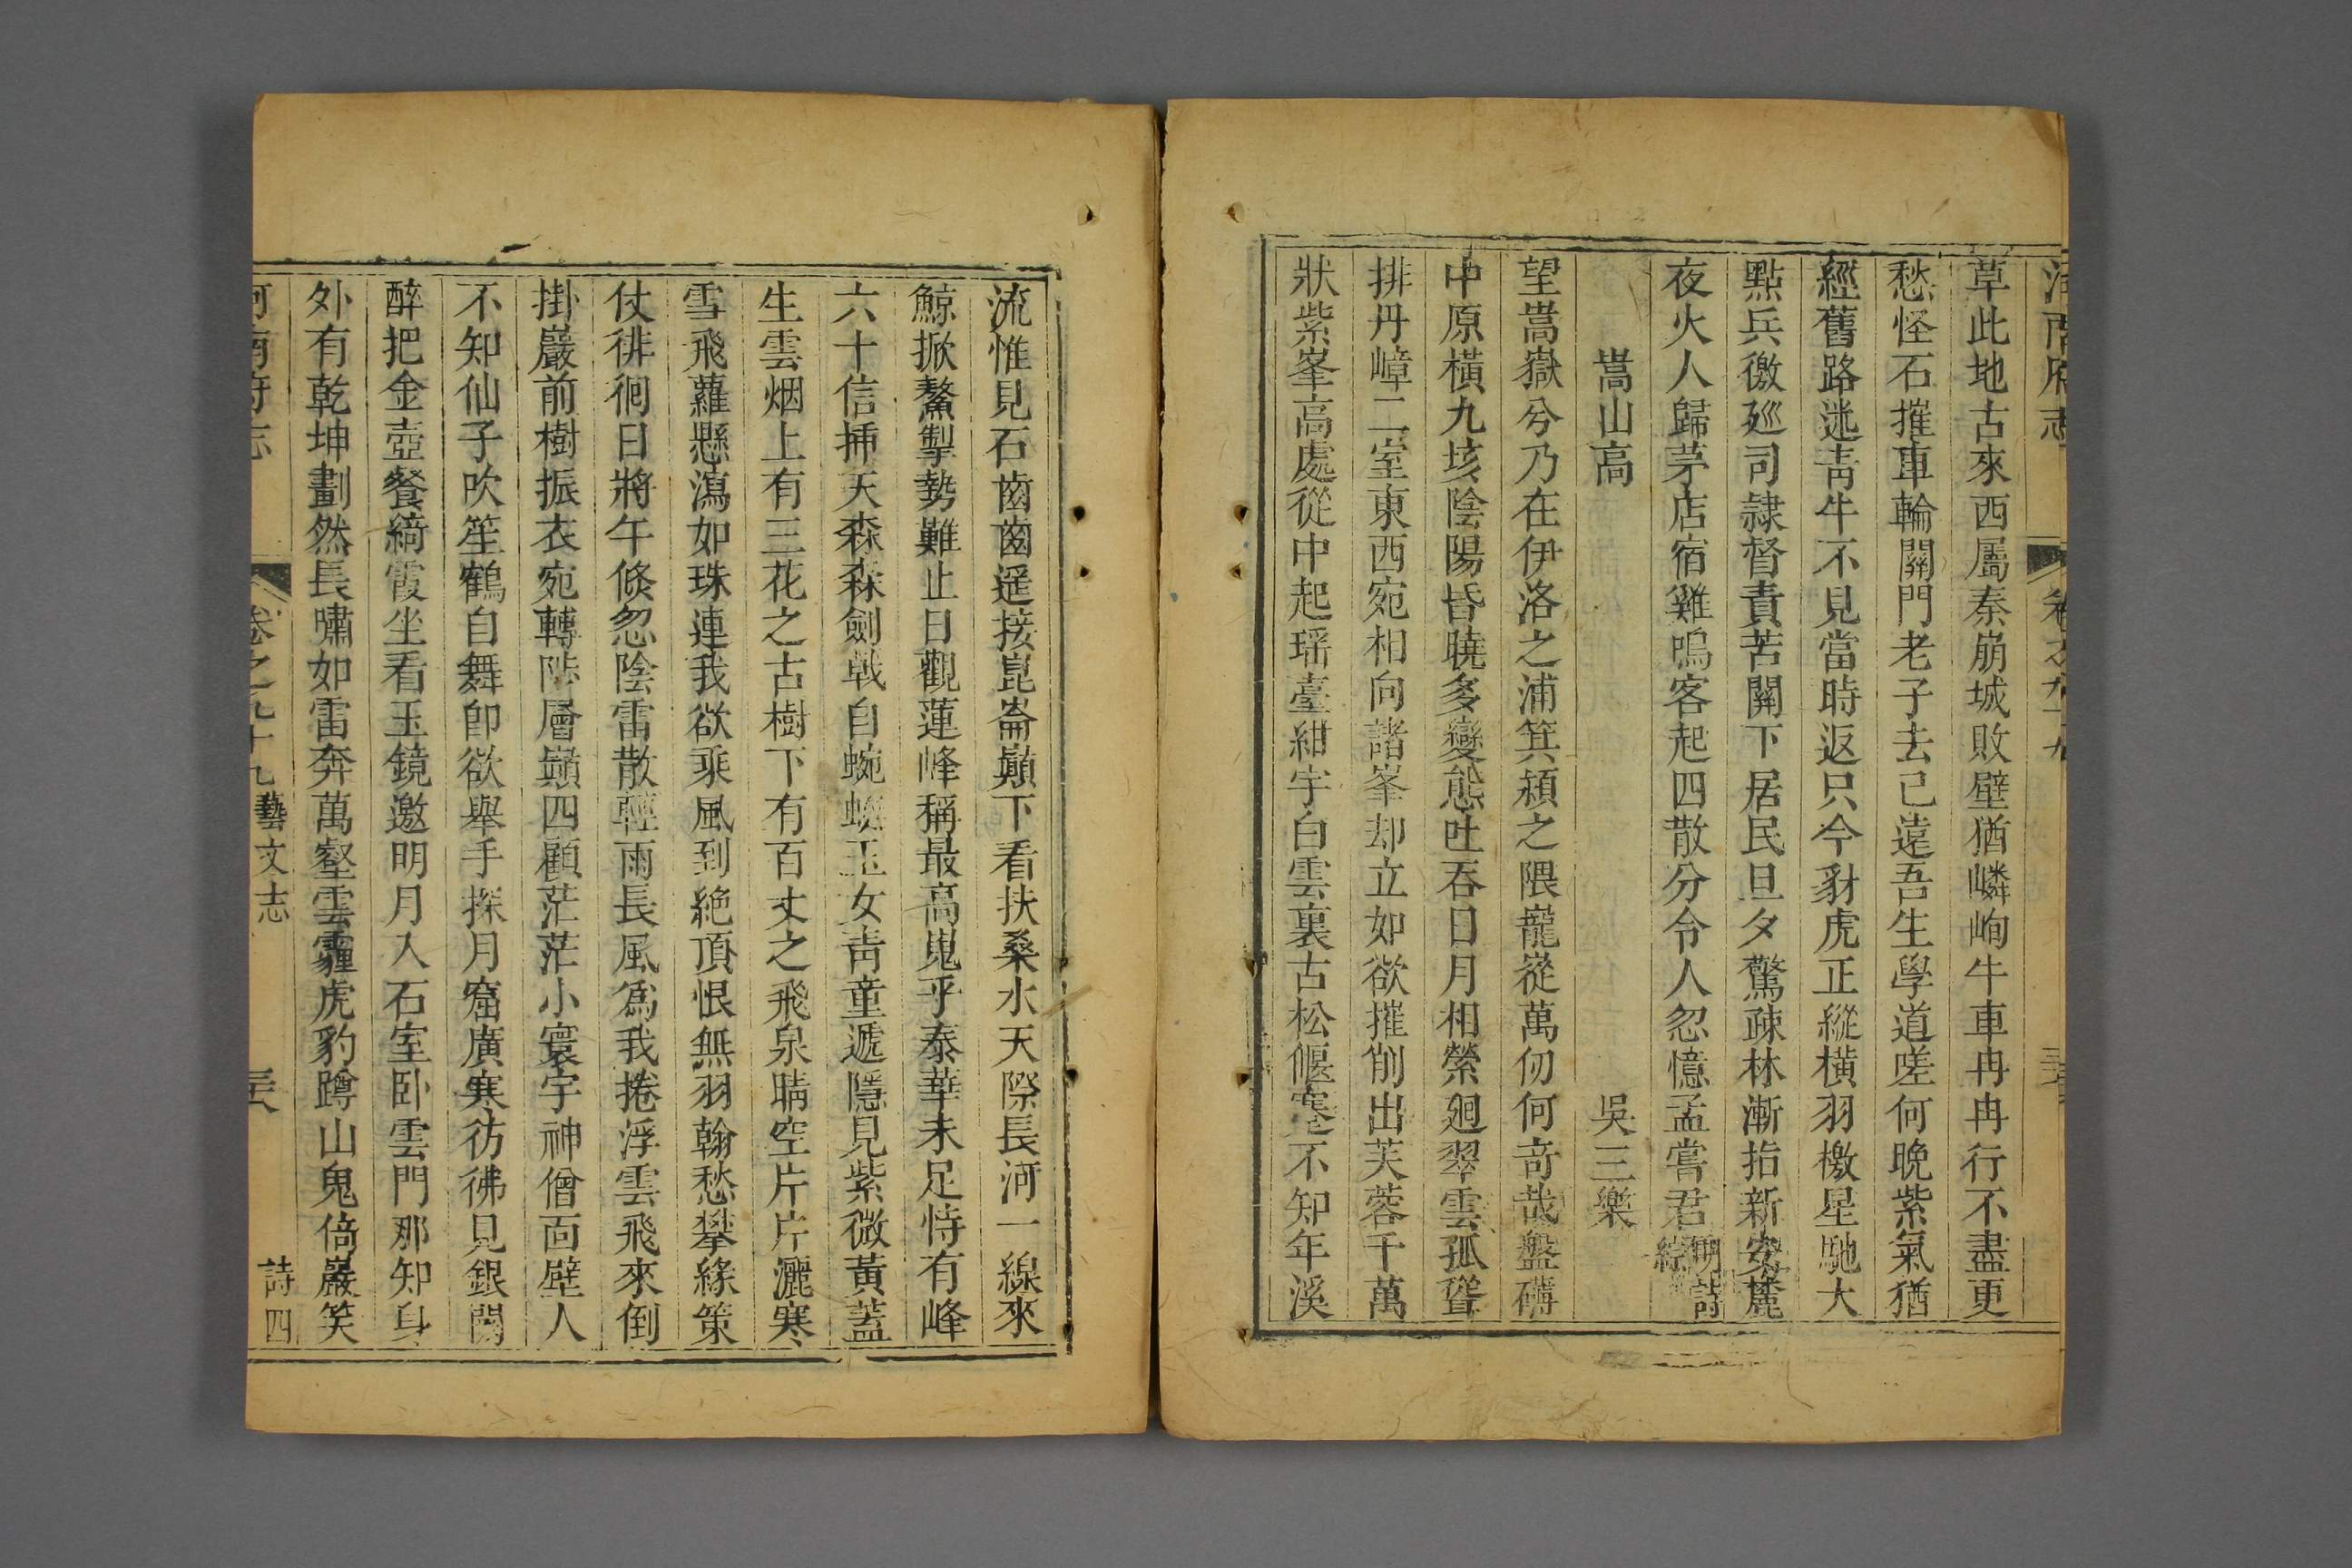 河南府志 卷之九十九
草此地古來西屬秦崩城敗壁猶嶙峋牛車冉冉行不盡更
愁怪石摧車輪關門老子去已遠吾生學道嗟何晚紫氣猶
經舊路迷青牛不見當時返只今豺虎正縱橫羽檄星馳大
點兵徼廵司隷督責苦關下居民旦夕驚疎林漸指新安麓
夜火人歸茅店宿雞鳴客起四散分令人忽憶孟嘗君明詩綜
嵩山高 吳三樂
望嵩嶽兮乃在伊洛之浦箕潁之隈巃嵸萬仞何奇哉盤礴
中原橫九垓陰陽昏曉多變態吐吞日月相縈廻翠雲孤聳
排丹嶂二室東西宛相向諸峯却立如欲摧削出芙蓉千萬
狀紫峯高處從中起瑶臺紺宇白雲裏古松偃蹇不知年溪
流惟見石齒齒遥接崑崙巔下看扶桑水天際長河一線來
鯨掀鰲掣勢難止日觀蓮峰稱最高嵬乎泰華未足恃有峰
六十信揷天森森劍戟自蜿蜒玉女青童遞隱見紫微黃蓋
生雲烟上有三花之古樹下有百丈之飛泉睛空片片灑寒
雪飛蘿懸瀉如珠連我欲乘風到絶頂恨無羽翰愁攀緣策
仗徘徊日將午倐忽陰雷散輕雨長風爲我捲浮雲飛來倒
掛巖前樹振衣宛轉陟層巔四顧茫茫小寰宇神僧面壁人
不知仙子吹笙鶴自舞卽欲舉手探月窟廣寒彷彿見銀闕
醉把金壺餐綺霞坐看玉鏡邀明月入石室卧雲門那知身
外有乾坤劃然長嘯如雷奔萬壑雲霾虎豹蹲山鬼倚巖笑
河南府志 卷之九十九 藝文志 詩四